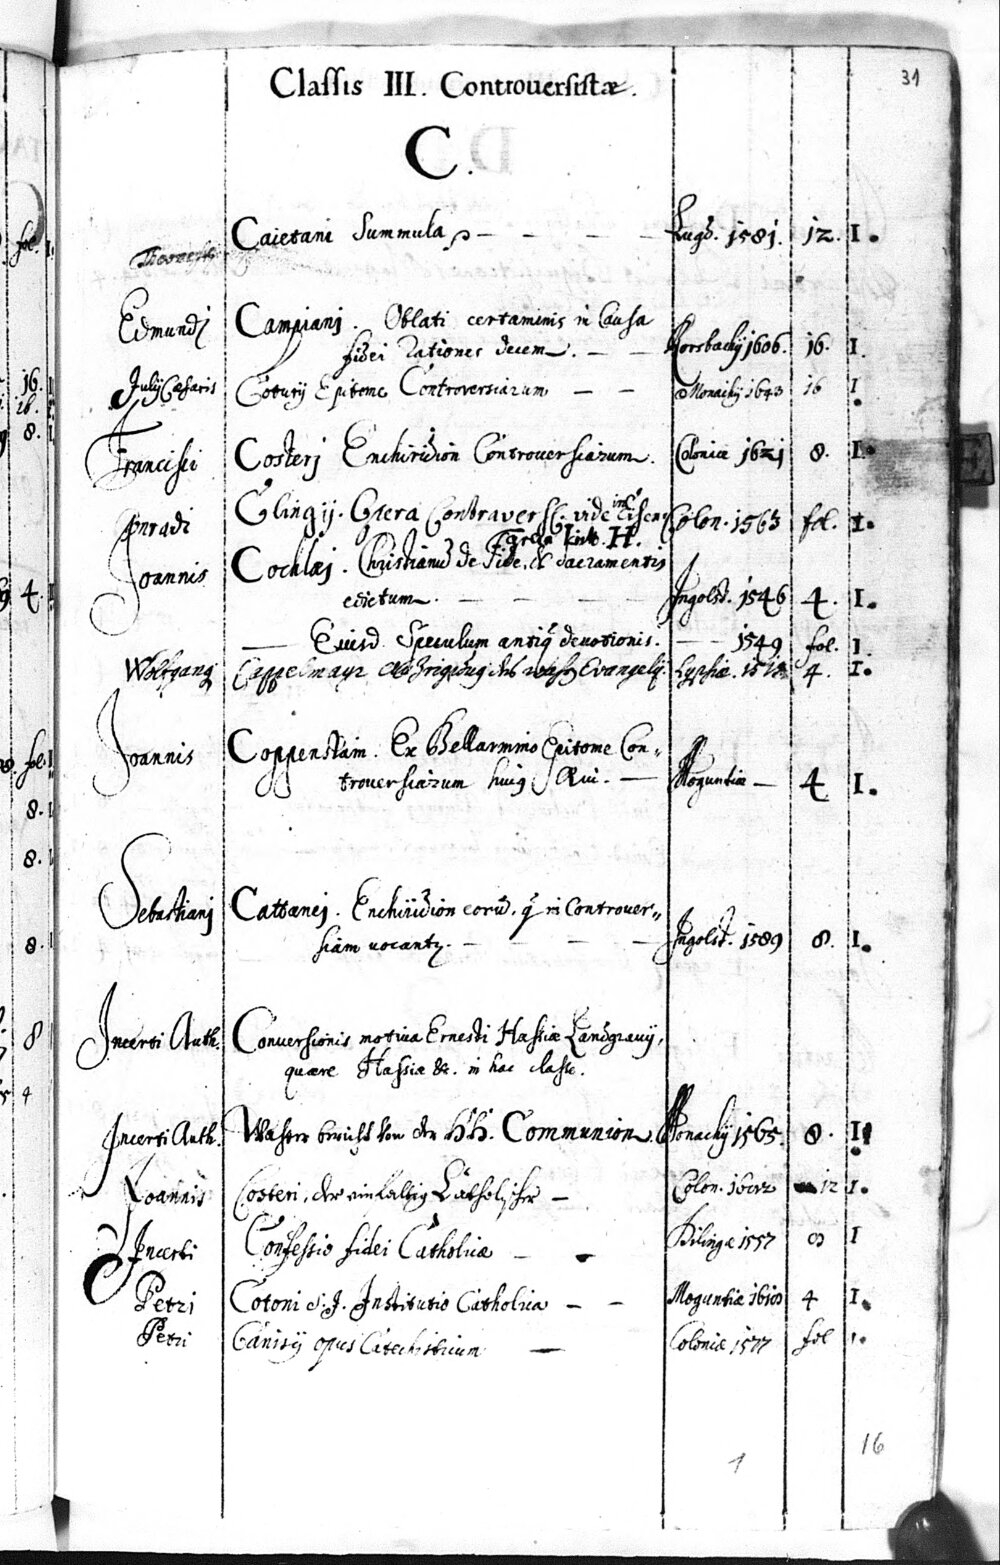 31
Classis III. Controversistæ.
C.
Caietani Summula — — — — Lugd. 1581. 12. I.
Edmundj Campianj. Oblati certaminis in Causa
fidei rationes decem. — — 1606. 16. I.
Julij Cæsaris Epitome Controversiarum — — Monachij 1643 16 I
Francisci Costerj Enchiridion Controversiarum. Coloniæ 1621 8. I.
Conradi Clingij. Contravers. vide Colon. 1563 fol. I.
lit. H.
Joannis Cochlæj. Christianũ de Fide, et Sacramentis
edictum. — — — Ingolst. 1546 4. I.
— Eiusd Speculum antiq̃ devotionis. — — 1549 fol. I.
Wolfgang Cappelmayr des Evangelij. 4. I.
Joannis Coppenstain. Ex Bellarmino Epitome Con„
troversiarum huiq Ævi. — Moguntiæ — 4 I.
Sebastianj Cattanej. Enchiridion eorũ, q̃ in Controver„
siam vocantʒ. — — — — Ingolst. 1589 8. I.
Incerti Auth. Conversionis motiva Ernesti Hassiæ Landgravij,
quære Hassiæ &c. in hac classe.
Incerti Auth. Wahrer bericht von der HH. Communion. Monachij 1565. 8. I
Joannis Costeri, der einfaltig Catholische — Colon. 12 I.
Incerti Confessio fidei Catholicæ — Dilingæ 1557 8 I
Petri Cotoni S.J. Institutio Catholica — — Moguntiæ 4 I.
Petri Canisij opus Catechisticum — Coloniæ 1577 fol I.
1
16